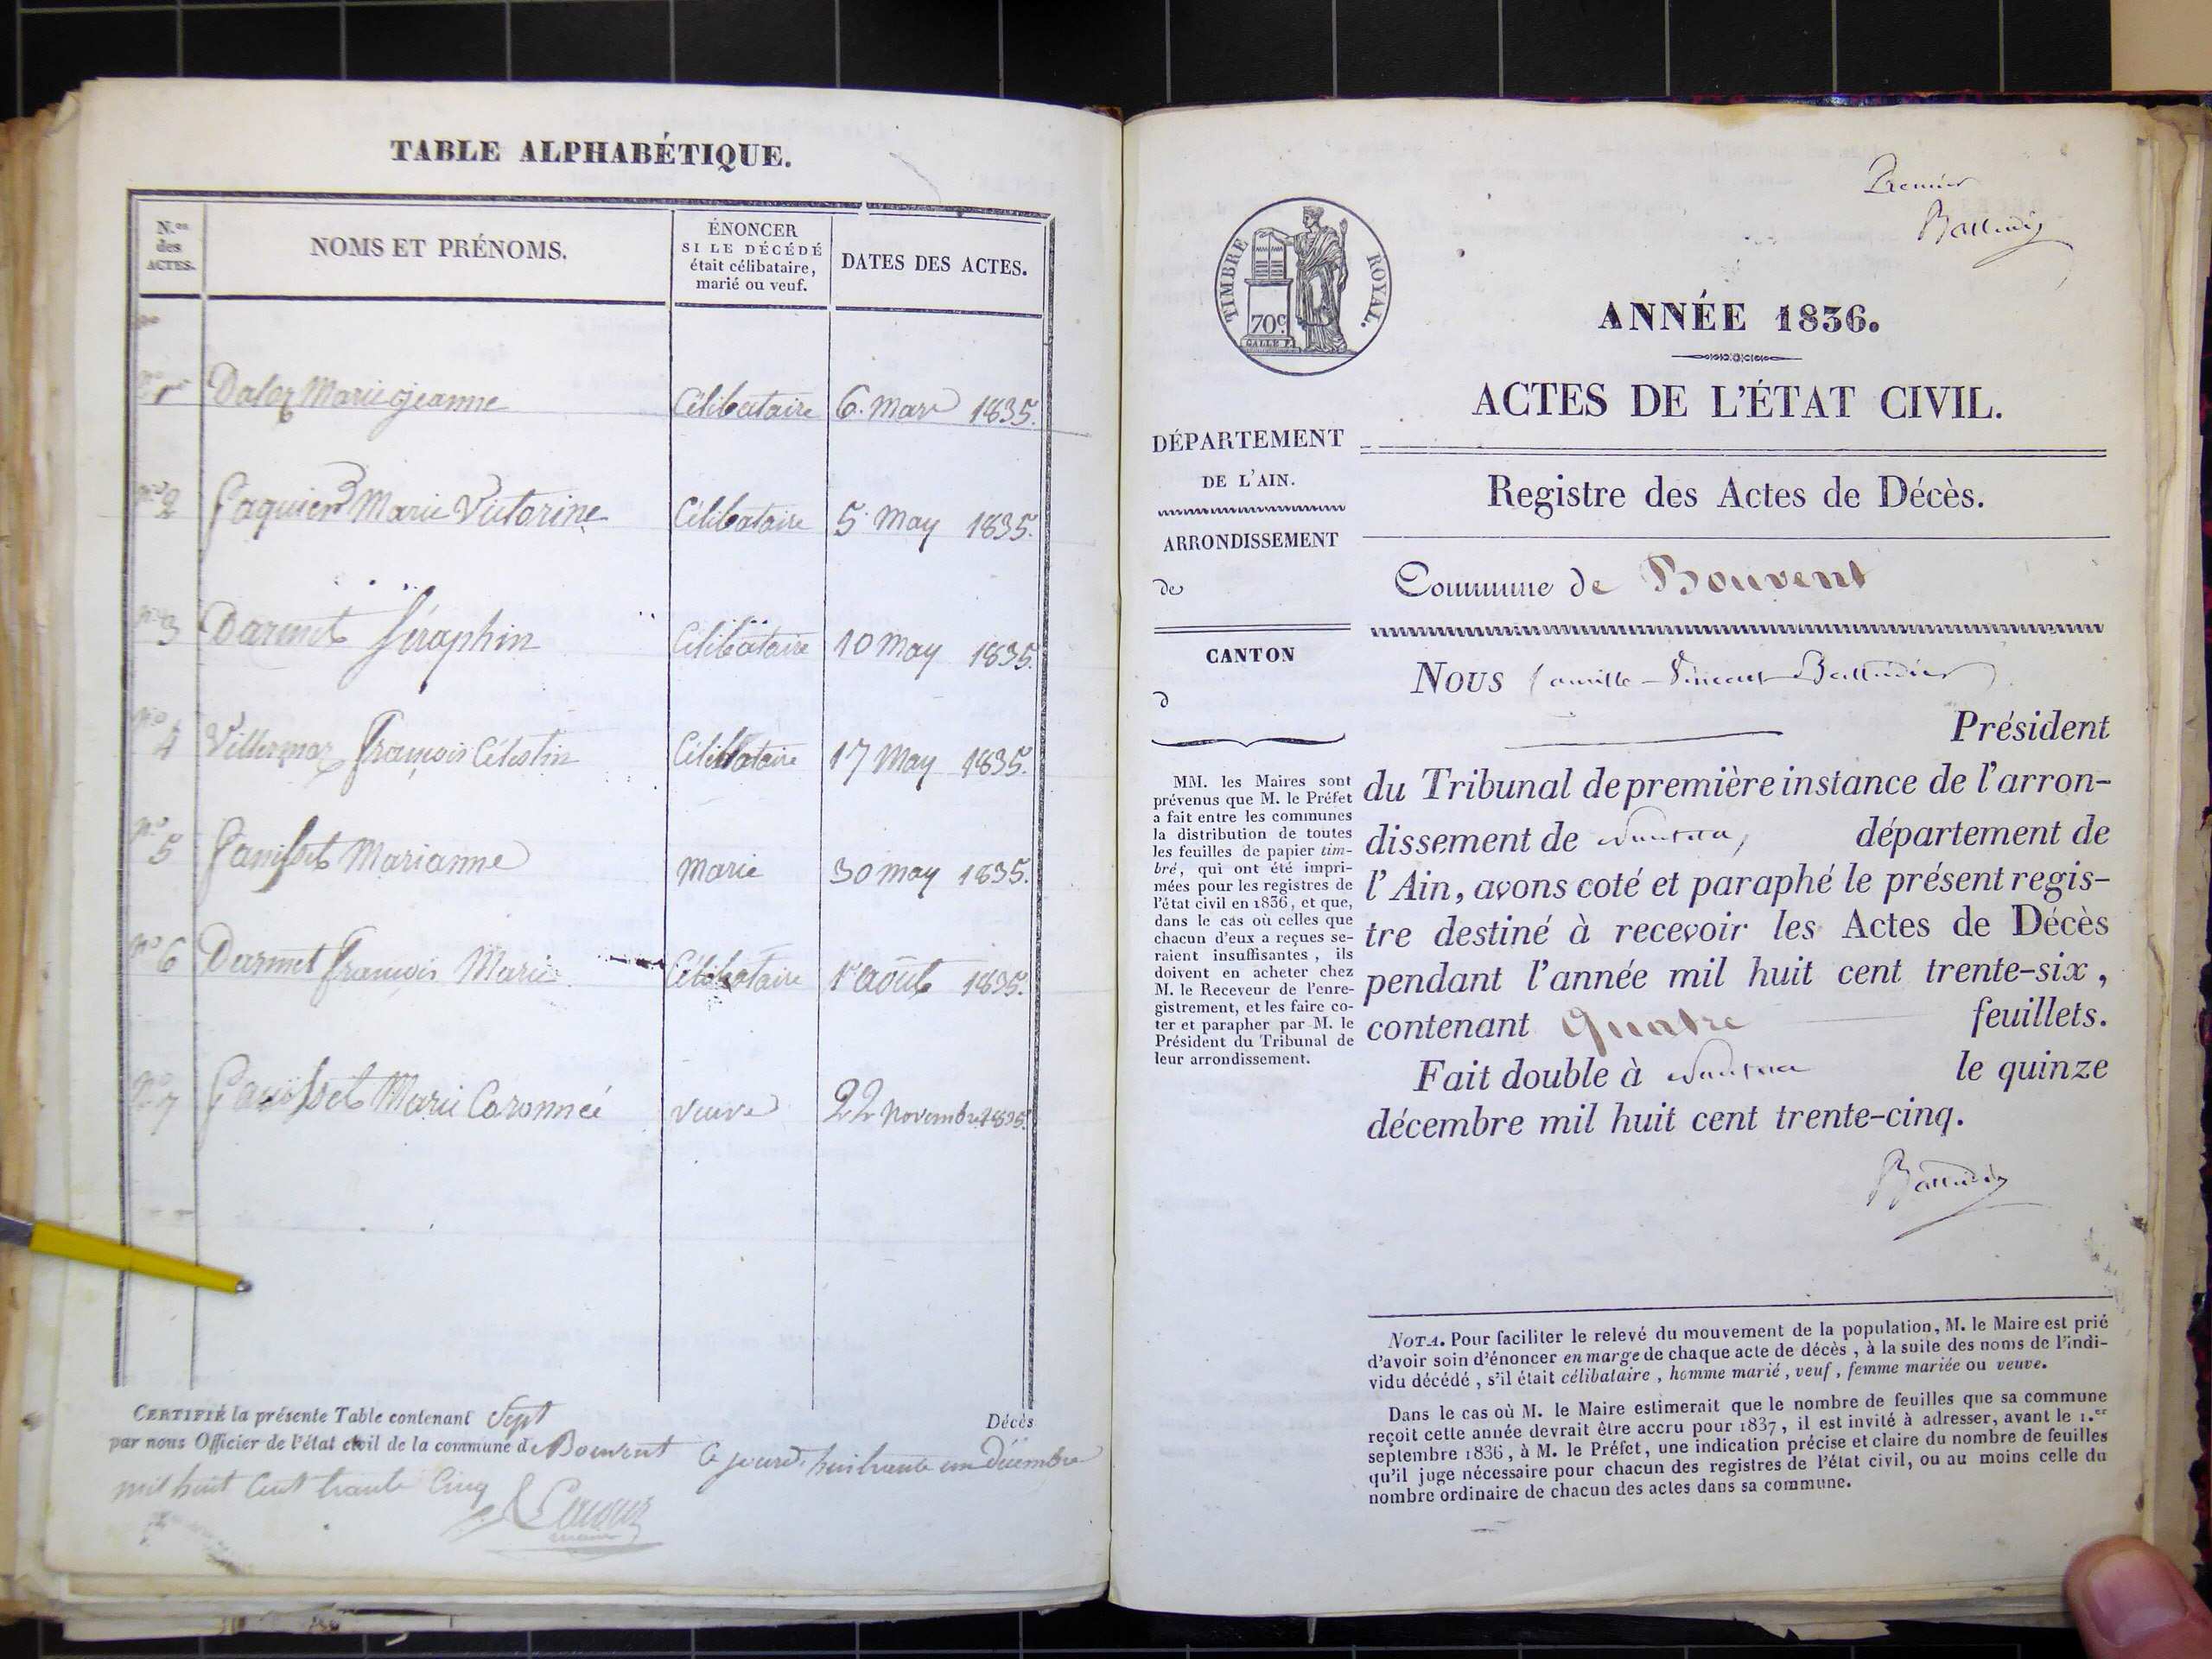 TABLE ALPHABÉTIQUE.
N.os des ACTES.
NOMS ET PRÉNOMS.
ÉNONCER SI LE DÉCÉDÉ était célibataire, marié ou veuf.
DATES DES ACTES.
Marie jeanne Célibataire 6. Mars 1835.
n.o 2 Marie Victorine Célibataire 5 May 1835.
n.o 3 Darmet Séraphin Célibataire 10 May 1835.
n.o 4 François Célestin Célibataire 17 May 1835.
n.o 5 Marianne Marié 30 may 1835.
n.o 6 Darmet François Marie Célibataire 1er août 1835.
n.o 7 Marie veuve 22 novembre 1835.
CERTIFIÉ la présente Table contenant Sept Décès
par nous Officier de l'état civil de la commune de Bouvent Ce jourd'hui trante un Décembre
mil huit Cent trante Cinq
Premier
TIMBRE ROYAL.
70c
ANNÉE 1836.
ACTES DE L'ÉTAT CIVIL.
DÉPARTEMENT
DE L'AIN.
ARRONDISSEMENT
de
CANTON
d
MM. les Maires sont
prévenus que M. le Préfet
a fait entre les communes
la distribution de toutes
les feuilles de papier tim-
bré, qui ont été impri-
mées pour les registres de
l'état civil en 1836, et que,
dans le cas où celles que
chacun d'eux a reçues se-
raient insuffisantes, ils
doivent en acheter chez
M. le Receveur de l'enre-
gistrement, et les faire co-
ter et parapher par M. le
Président du Tribunal de
leur arrondissement.
Registre des Actes de Décès.
Commune de Bouvent
Nous Camille Vincent
Président
du Tribunal de première instance de l'arron-
dissement de Nantua, département de
l'Ain, avons coté et paraphé le présent regis-
tre destiné à recevoir les Actes de Décès
pendant l'année mil huit cent trente-six,
contenant Quatre feuillets.
Fait double à Nantua le quinze
décembre mil huit cent trente-cinq.
NOTA. Pour faciliter le relevé du mouvement de la population, M. le Maire est prié
d'avoir soin d'énoncer en marge de chaque acte de décès, à la suite des noms de l'indi-
vidu décédé, s'il était célibataire, homme marié, veuf, femme mariée ou veuve.
Dans le cas où M. le Maire estimerait que le nombre de feuilles que sa commune
reçoit cette année devrait être accru pour 1837, il est invité à adresser, avant le 1.er
septembre 1836, à M. le Préfet, une indication précise et claire du nombre de feuilles
qu'il juge nécessaire pour chacun des registres de l'état civil, ou au moins celle du
nombre ordinaire de chacun des actes dans sa commune.